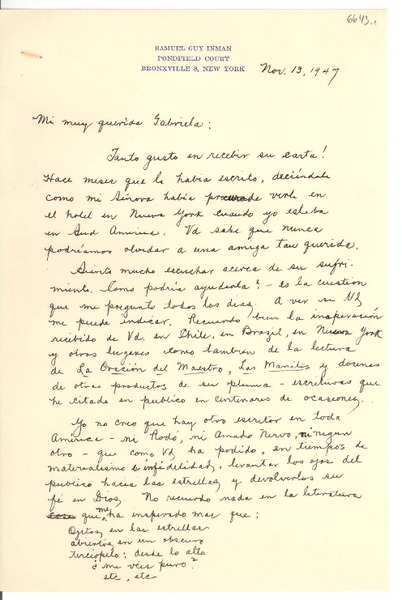 6643.1
SAMUEL GUY INMAN
PONDFIELD COURT
BRONXVILLE 8, NEW YORK
Nov. 13, 1947
Mi muy querida Gabriela:
Tanto gusto en recibir su carta!
Hace meses que la habia escrito, deciéndole
como mi Señora habia verle en
el hotel en Nueva York cuando yo estaba
en Sud America. Vd sabe que nunca
podríamos olvidar a una amiga tan querida.
Siento mucho escuchar acerca de su sufri-
miento. Como podria ayudarla? - es la cuestion
que me pregunto todos los dias. A ver si Vd,
me puede indicar. Recuerdo bien la inspiración
recibido de Vd. en Chile, en Brazil, en Nueva York
y otros lugares como tambien de la lectura
de La Oración del Maestro, Las Manitas y docenas
de otras productos de su pluma - escrituras que
he citado en publico en centenares de ocasiones.
Yo no creo que hay otro escritor en toda
America - ni Rodó, ni Amado Nervo, ni ningun
otro - que como Vd, ha podido, en tiempos de
materialismo e infidelidad, levantar los ojos del
publico hacia las estrellas y devolverlos su
fé en Dios. No recuerdo nada en la literatura
que me ha inspirado mas que:
Ojitos, en las estrellas
abiertos, en un obscuro
terciopelo: desde lo alto
¿me veis puro?
etc, etc